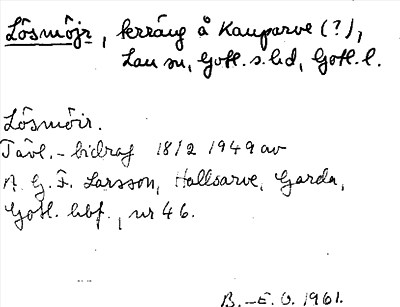 Lösmöjr, terräng å Kauparve (?),
Lau sn, Gotl. s. hd, Gotl. l.
Lösmöir.
Tävl.-bidrag 18/2 1949 av
N. G. F. Larsson, Hallsarve, Garda,
Gotl. hbf., nr 46.
B.-E. O. 1961.